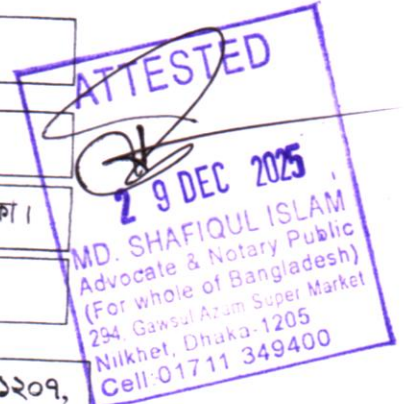 ATTESTED
2 9 DEC 2025
MD. SHAFIQUL ISLAM
Advocate & Notary Public
(For whole of Bangladesh)
294, Gawsul Azam Super Market
Nilkhet, Dhaka-1205
Cell:01711 349400
১২০৭,